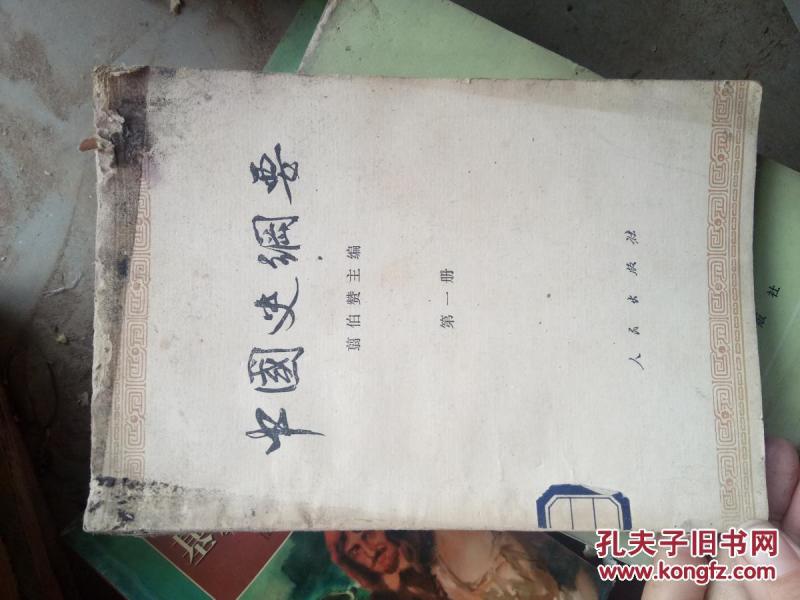 中國史綱要
翦伯赞主编
第一册
人民出版社
版社
基
孔夫子旧书网
www.kongfz.com